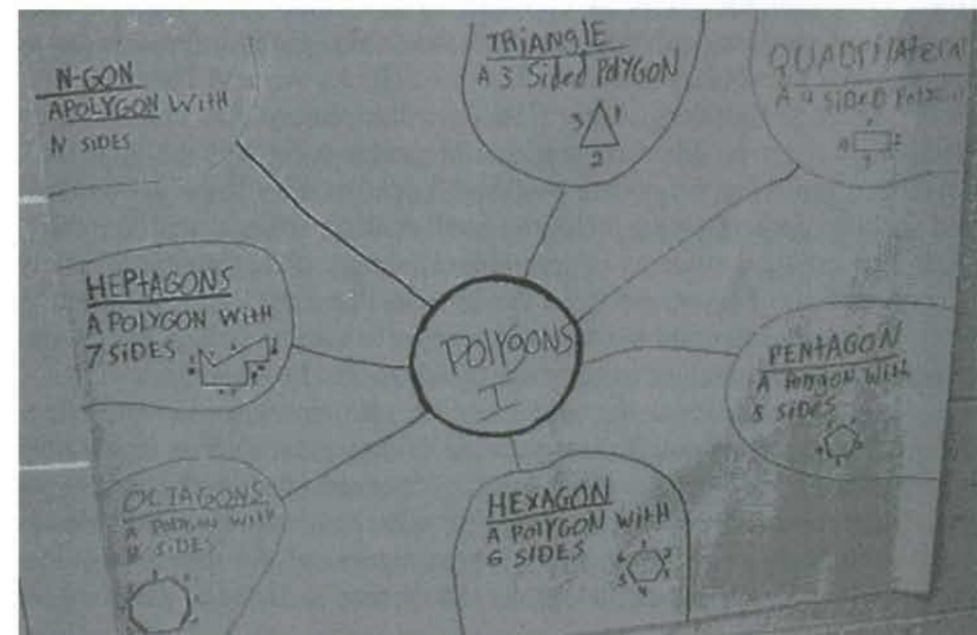 N-GON
A POLYGON WITH
N SIDES
TRIANGLE
A 3 Sided POLYGON
3 1
2
QUADRilateral
A 4 SIDED
HEPTAGONS
A POLYGON WITH
7 SIDES
POLYGONS
I
PENTAGON
A POLYGON WITH
5 SIDES
OCTAGONS
A POLYGON WITH
8 SIDES
HEXAGON
A POLYGON WITH
6 SIDES
1
6 2
5 3
4